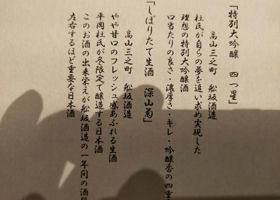 「特別大吟醸　四つ星」
高山三之町　舩坂酒造
杜氏が自らの夢を追い求め実現した
理想の特別大吟醸
口当たりの良さ・濃厚さ・キレ・吟醸香の四重
「しぼりたて生酒　深山菊」
高山三之町　舩坂酒造
やや甘口のフレッシュ感あふれる生酒
平岡杜氏が冬限定で醸造する日本酒
このお酒の出来栄えが舩坂酒造の一年間の酒
左右するほど重要な日本酒